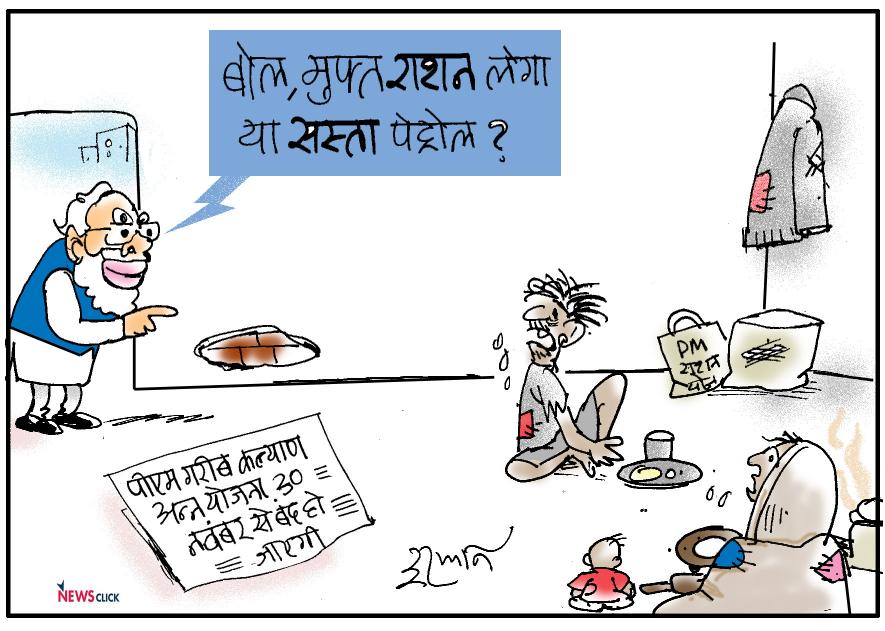 बोल, मुफ्त राशन लेगा
या सस्ता पेट्रोल ?
PM
राशन
पीएम गरीब कल्याण
अन्न योजना 30
नवंबर से बंद हो
जाएगी
इरफान
NEWSCLICK